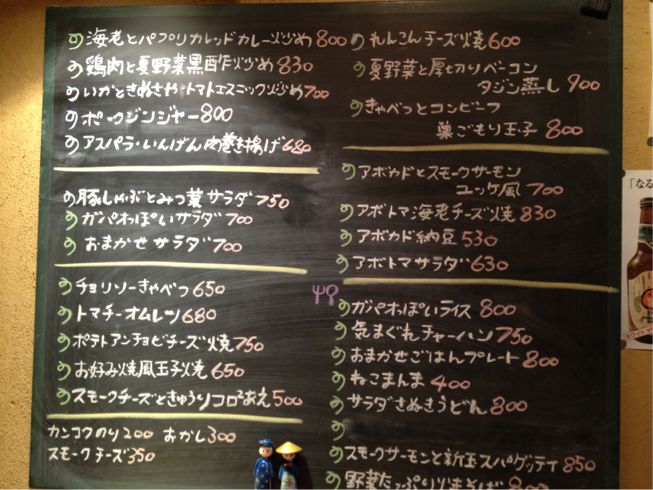 海老とパプリカレッドカレー炒め 800
鶏肉と夏野菜黒酢炒め 830
いかときぬさや・トマトエスニック炒め 700
ポークジンジャー 800
アスパラ・いんげん肉巻き揚げ 680
豚しゃぶとみつ葉サラダ 750
ガパオっぽいサラダ 700
おまかせサラダ 700
チョリソーきゃべつ 650
トマチーオムレツ 680
ポテトアンチョビチーズ焼 750
お好み焼風玉子焼 650
スモークチーズときゅうりコロコロあえ 500
カンコクのり 200 おかし 300
スモークチーズ 350
れんこんチーズ焼 600
夏野菜と厚切りベーコン
タジン蒸し 900
きゃべつとコンビーフ
巣ごもり玉子 800
アボカドとスモークサーモン
ユッケ風 700
アボトマ海老チーズ焼 830
アボカド納豆 530
アボトマサラダ 630
ガパオっぽいライス 800
気まぐれチャーハン 750
おまかせごはんプレート 800
ねこまんま 400
サラダさぬきうどん 800
スモークサーモンと新玉スパゲッティ 850
野菜たっぷり焼そば 800
「なる